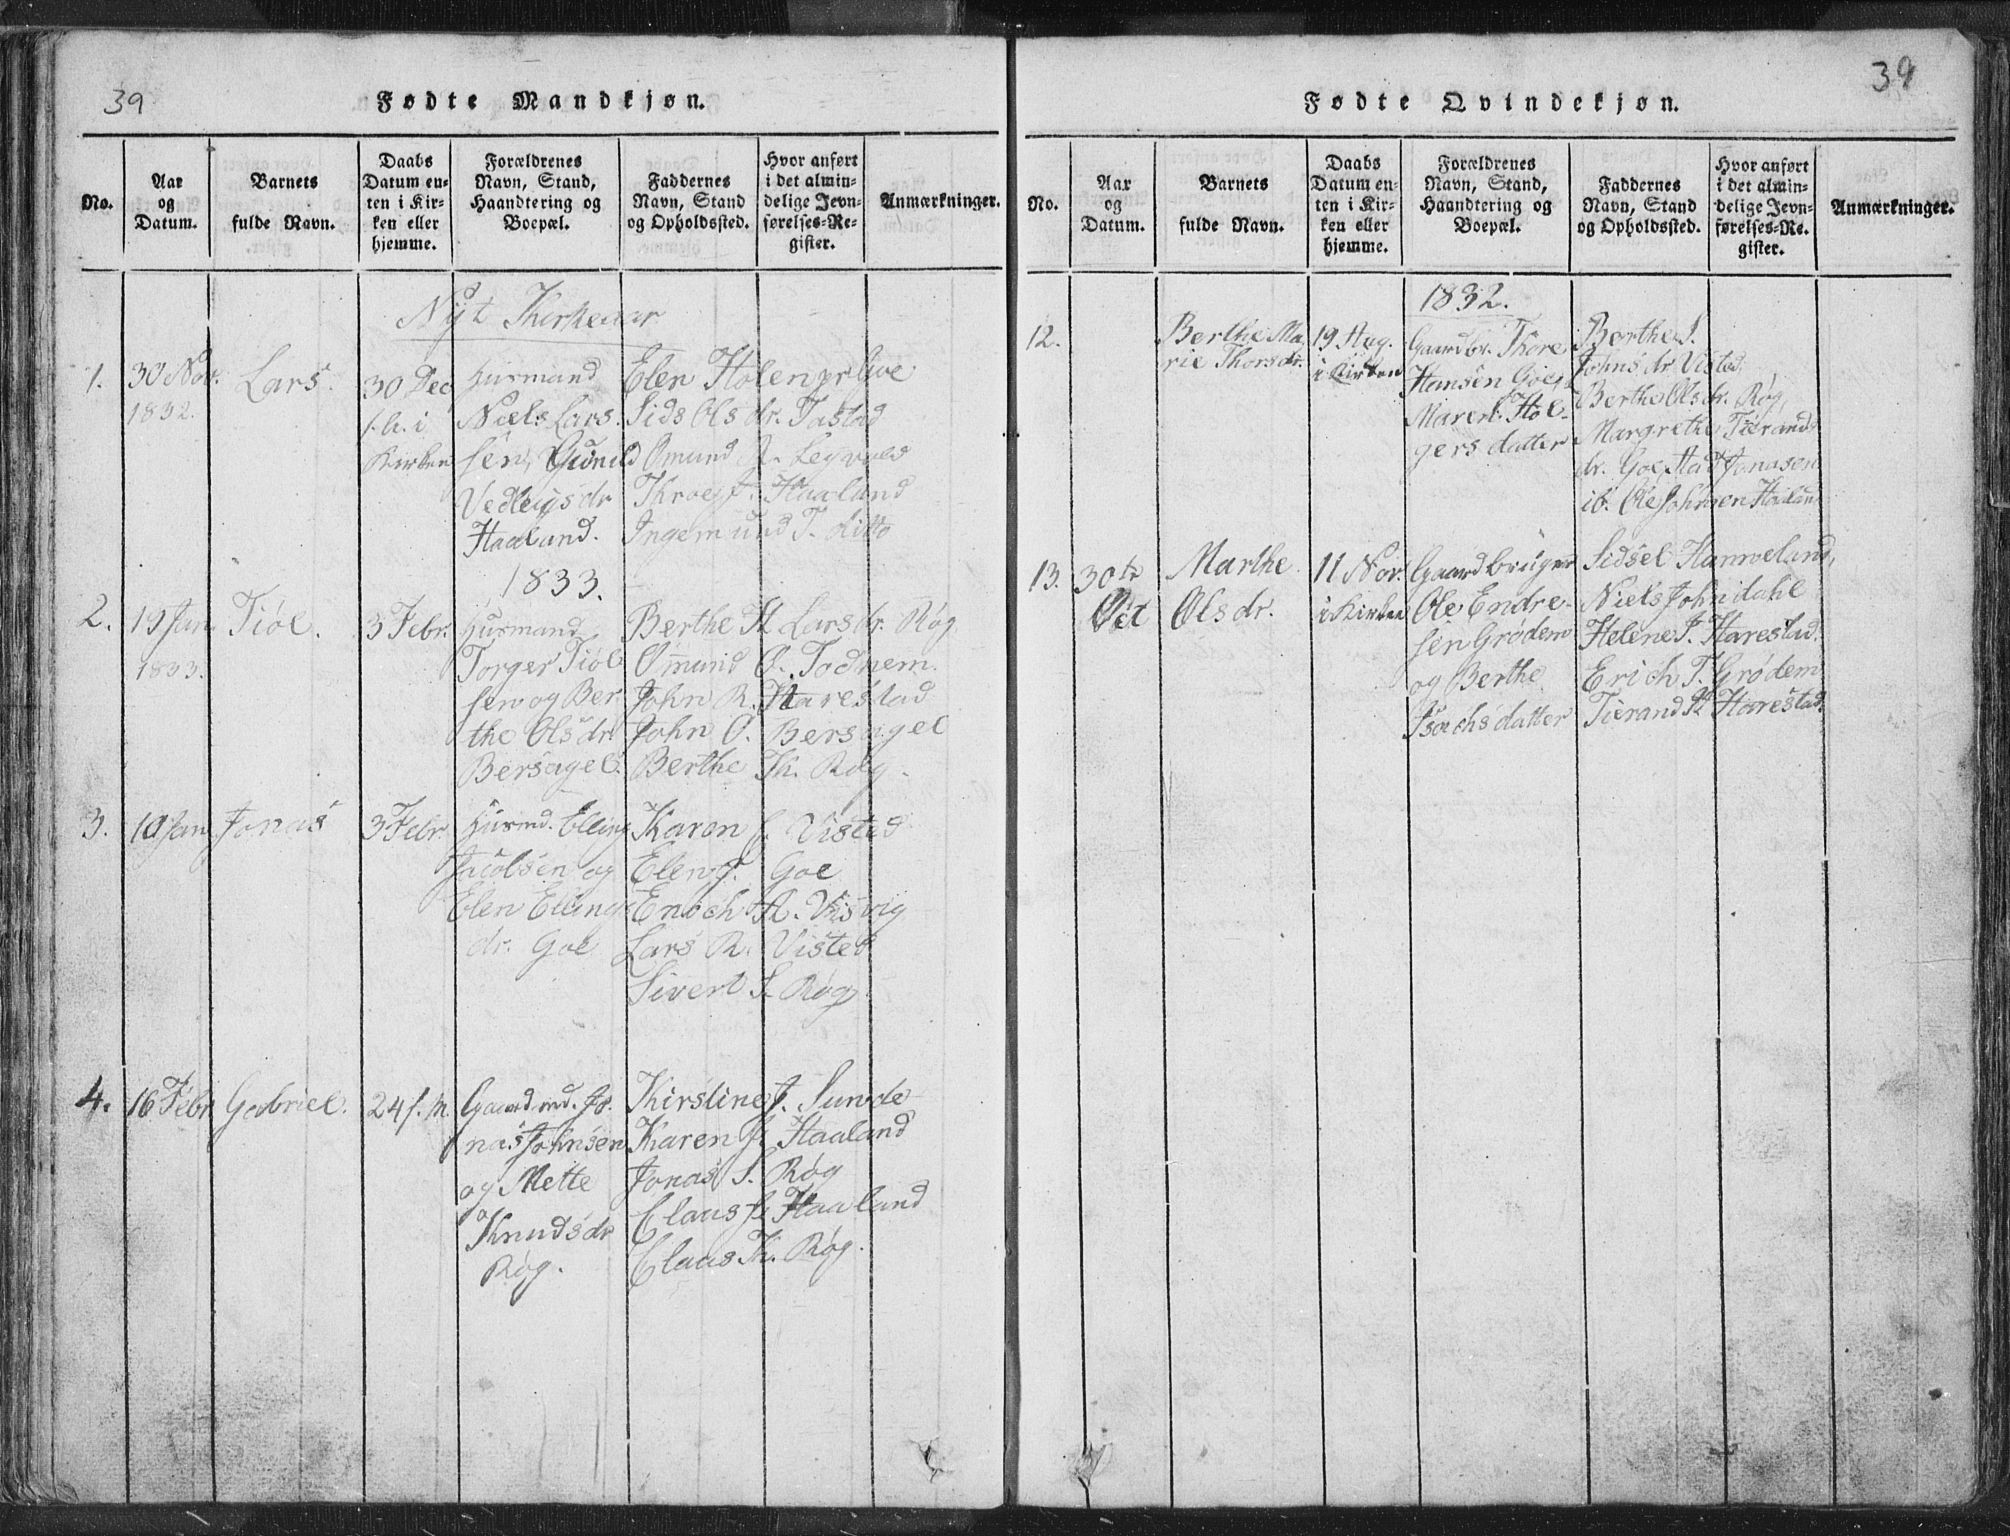 39
Fødte Mandkjøn.
No.
Aar
og
Datum.
Barnets
fulde Navn.
Daabs
Datum en-
ten i Kir-
ken eller
hjemme.
Forældrenes
Navn, Stand,
Haandtering og
Boepæl.
Faddernes
Navn, Stand
og Opholdssted.
Hvor anført
i det almin-
delige Jevn-
førelses-Re-
gister.
Anmærkninger.
Nyt Kirkeaar
1.
30 Nov.
1832.
Lars.
30 Dec
i
Kirken
Huusmand
Niels Lars-
sen, Gunild
Vedleigsdr
Haaland.
Elen Holen
Sids Olsdr. Tastad
Omund
Haaland
Ingemund T. ditto
1833.
2.
19 Jan
1833.
Tiøl.
3 Febr.
Huusmand
Torger Tiøl-
sen og Ber-
the Olsdr
Bersagel.
Berthe H Larsdr. Røg
Omund O. Todnem.
John R. Harestad
John O. Bersagel
Berthe Th. Røg.
3.
Jan
Jonas
3 Febr.
Huusmd. Elling
Jacobsen og
Elen Ellings
dr. Goe
Karen J. Vistad
Elen J. Goe
Enoch A. Viisvig
Lars R. Visted.
Sivert S. Røg.
4.
16 Febr
Gabriel.
24
Gaardmd. Jo-
nas Johnsen
og Mette
Knudsdr
Røg.
Kirstine J. Sunde
Karen J. Haaland
Jonas S. Røg
Claus J. Haaland
Claus Th. Røg.
39
Fødte Qvindekjøn.
No.
Aar
og
Datum.
Barnets
fulde Navn.
Daabs
Datum en-
ten i Kir-
ken eller
hjemme.
Forældrenes
Navn, Stand,
Haandtering og
Boepæl.
Faddernes
Navn, Stand
og Opholdssted.
Hvor anført
i det almin-
delige Jevn-
førelses-Re-
gister.
Anmærkninger.
1832.
12.
Berthe Ma-
rie Thorsdr.
19 Aug.
i Kirken
Gaardbr. Thore
Hansen Goe,
Maren Hol-
gersdatter
Berthe S.
Johnsdr. Visted
Berthe Olsdr. Røg,
Margrethe Tierands-
dr. Goe, Jonasen
ib. Ole Johnsen Haaland
13.
30te
Oct
Marthe
Olsdr.
11 Nov.
i Kirken
Gaardbruger
Ole Endre-
sen Grødem
og Berthe
Isachsdatter
Sidsel Hanveland,
Niels John dahl
Helene J. Harestad.
Erich T. Grødem
Tierand R. Harestad.